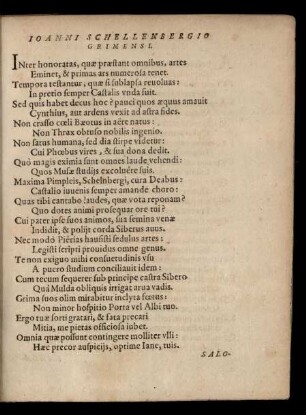 IOANNI SCHELLENBERGIO
GRIMENSI.
INter honoratas, quæ præstant omnibus, artes
Eminet, & primas ars numerosa tenet.
Tempora testantur, quæ si sublapsa reuoluas:
In pretio semper Castalis vnda fuit.
Sed quis habet decus hoc? pauci quos æquus amauit
Cynthius, aut ardens vexit ad astra fides.
Non crasso cœli Bœotus in aëre natus:
Non Thrax obtuso nobilis ingenio.
Non satus humana, sed dia stirpe videtur:
Cui Phœbus vires, & sua dona dedit.
Quò magis eximia sunt omnes laude vehendi:
Quos Musæ studijs excoluêre suis.
Maxima Pimpleis, Schelnbergi, cura Deabus:
Castalio iuuenis semper amande choro:
Quas tibi cantabo laudes, quæ vota reponam?
Quo dotes animi prosequar ore tui?
Cui pater ipse suos animos, sua semina venæ
Indidit, & polijt corda Siberus auus.
Nec modò Pierias hausisti sedulus artes:
Legisti scripti prouidus omne genus.
Te non exiguo mihi consuetudinis vsu
A puero studium conciliauit idem:
Cum tecum sequerer sub principe castra Sibero
Quà Mulda obliquis irrigat arua vadis.
Grima suos olim mirabitur inclyta fœtus:
Non minor hospitio Porta vel Albi tuo.
Ergo tuæ sorti gratari, & fata precari
Mitia, me pietas officiosa iubet.
Omnia quæ possunt contingere molliter vlli:
Hæc precor auspicijs, optime Iane, tuis.
SALO-